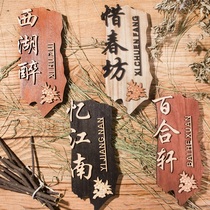 西湖醉
XI HU ZUI
惜春坊
XI CHUN FANG
忆江南
YI JIANG NAN
百合轩
BAI HE XUAN